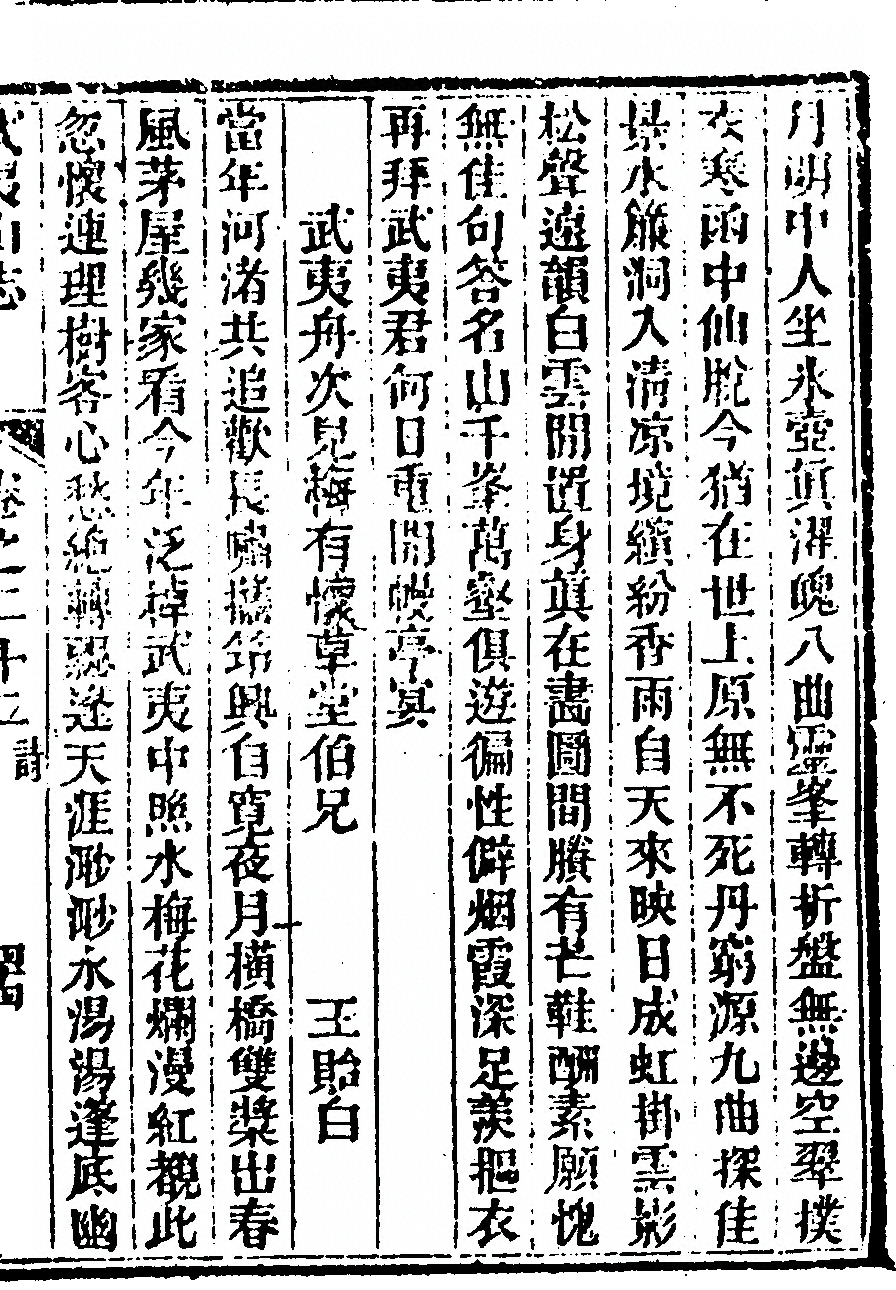 月明中人坐氷壺眞濯魄八曲靈峯轉折盤無邊空翠撲
衣寒函中仙脫今猶在世上原無不死丹窮源九曲探佳
景水簾洞入淸凉境繽紛香雨自天來映日成虹掛雲影
松聲遠韻白雲開置身眞在畵圖間賸有芒鞋酬素願愧
無佳句答名山千峯萬壑俱遊徧性僻烟霞深足羨摳衣
再拜武夷君何日重開幔亭宴
武夷舟次見梅有懷草堂伯兄　王貽白
當年河渚共追歡長嘯攜筇興自寛夜月橫橋雙槳出春
風茅屋幾家看今年泛棹武夷中照水梅花爛漫紅覩此
忽懷連理樹客心愁絶轉飄蓬天涯渺渺永湯湯蓬底幽
武夷山志　卷之二十二　詩　四